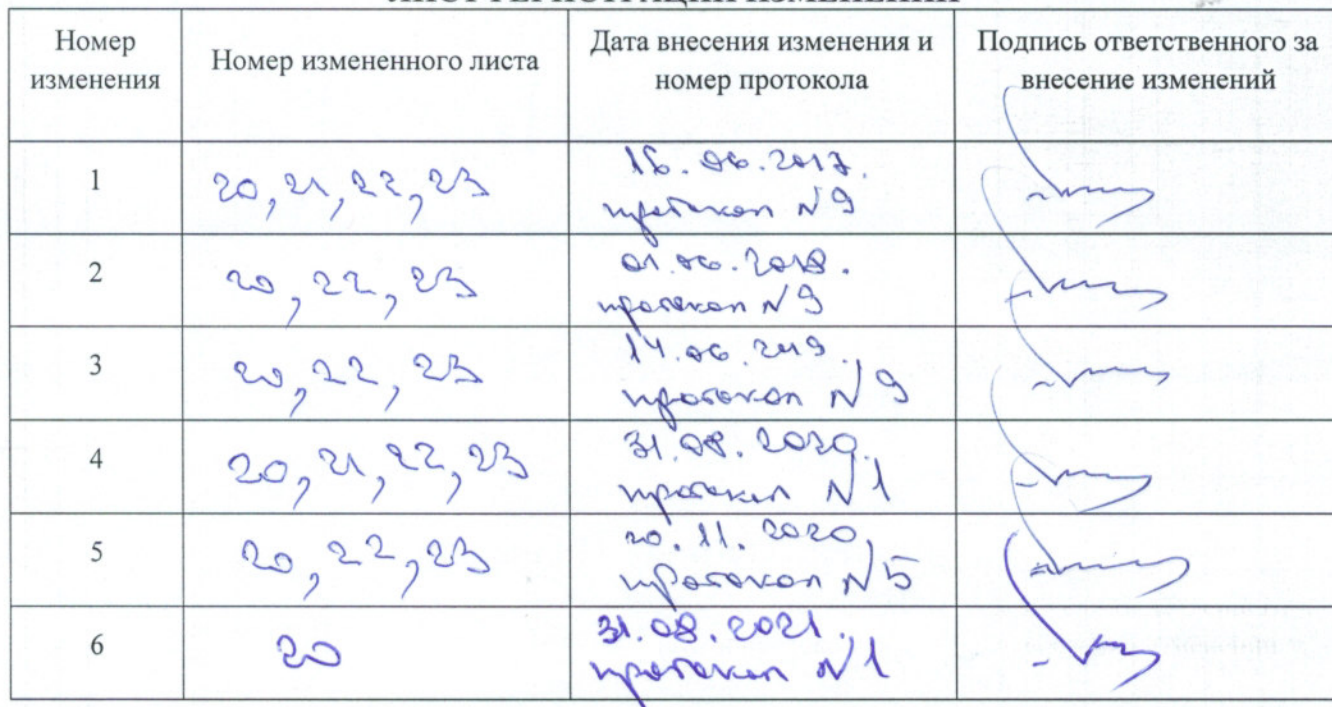 ЛИСТ РЕГИСТРАЦИИ ИЗМЕНЕНИЙ
Номер изменения
Номер измененного листа
Дата внесения изменения и номер протокола
Подпись ответственного за внесение изменений
1
20, 21, 22, 23
16.06.2017.
протокол №9
2
20, 22, 23
01.06.2018.
протокол №9
3
20, 22, 23
14.06.2019.
протокол №9
4
20, 21, 22, 23
31.08.2020.
протокол №1
5
20, 22, 23
20.11.2020,
протокол №5
6
20
31.08.2021,
протокол №1